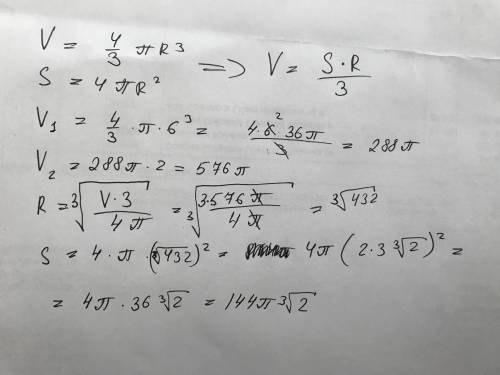 V = 4/3 πR³
S = 4πR² => V = S·R/3
V₁ = 4/3 · π · 6³ = 4·6² 36π/3 = 288π
V₂ = 288π · 2 = 576π
R = ³√(V·3/4π) = ³√(3·576π/4π) = ³√432
S = 4 · π · (³√432)² = 4π(2·3 ³√2)² =
= 4π · 36 ³√2 = 144π ³√2